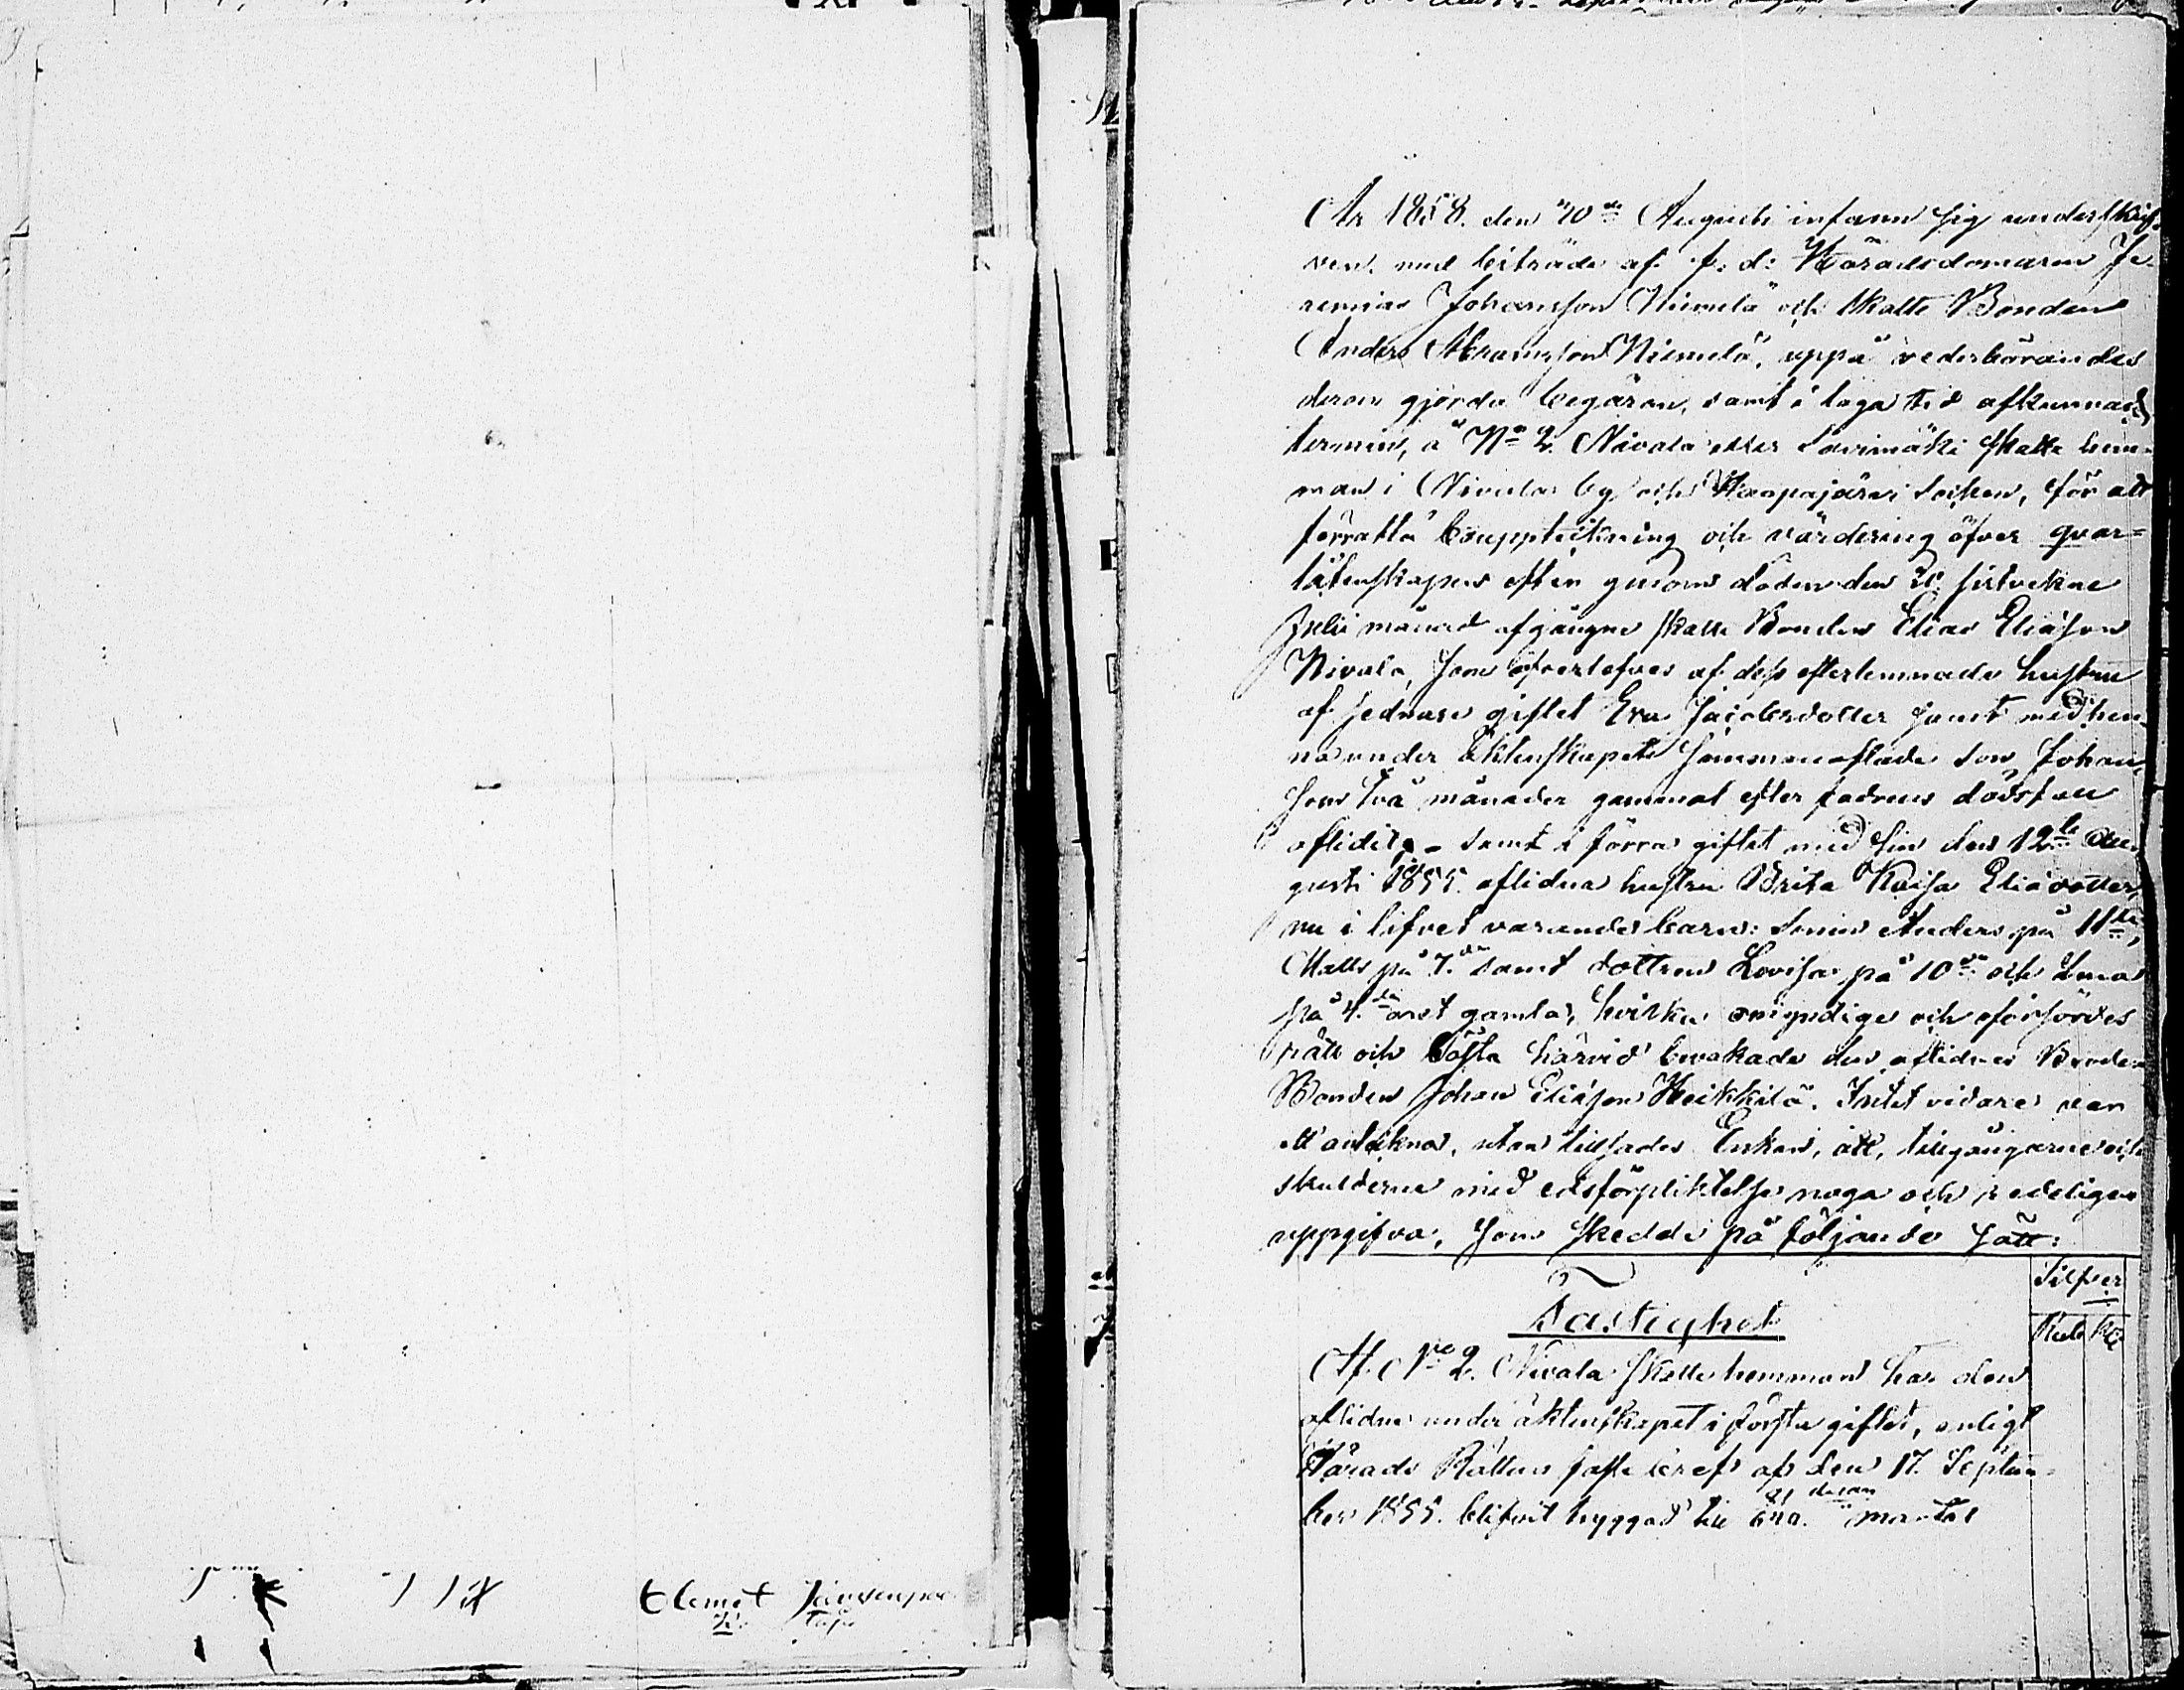 År 1858. den 20de Augusti infann sig underskrif-
ven med biträde af f. d: Häradsdomaren Je-
remias Johansson Niemelä och Skatte Bonden
Anders Abramsson Niemelä, uppå vederbörandes
derom gjorda begäran, samt i laga tid afkunnad
termin, å No 2. Nivala eller Savimäki skatte hem-
man i Nivala by och Haapajärvi Socken, för att
förrätta bouppteckning och värdering öfver qvar-
låtenskapen efter genom döden den sistvekne
Julii månad afgångne skatte Bonden Elias Eliasson
Nivala, som öfverlefves af dess efterlemnade hustru
af sednare giftet Eva Jacobsdotter samt med hen-
ne under äktenskapet sammanaflade son Johan,
som två månader gammal efter fadrens död
aflidit, - samt i förra giftet med sin den 12te Au-
gusti 1855. aflidna hustru Brita Kaisa Eliædotter,
nu i lifvet varande barn: Sonen Anders på 11te,
Matts på 7de samt dottren Lovisa på 10de och
på 4de året gamla, hvilka omyndige och oförsörjdes
rätt och bästa härvid bevakade den aflidnes Broder
Bonden Johan Eliasson Heikkilä. Intet vidare var
att anteckna, utan tillsades Enkan, att, tillgångarne och
skulderna med edsförpliktelse noga och redeligen
uppgifva, som skedde på följande sätt:
Silfver
Fastighet
Rub Ko
Af No 2. Nivala skatte hemman har den
aflidne under äktenskapet i första giftet, enligt
Härads Rättens faste bref af den 17. Septem-
ber 1855. blifvit tryggad till mantal
Clemet